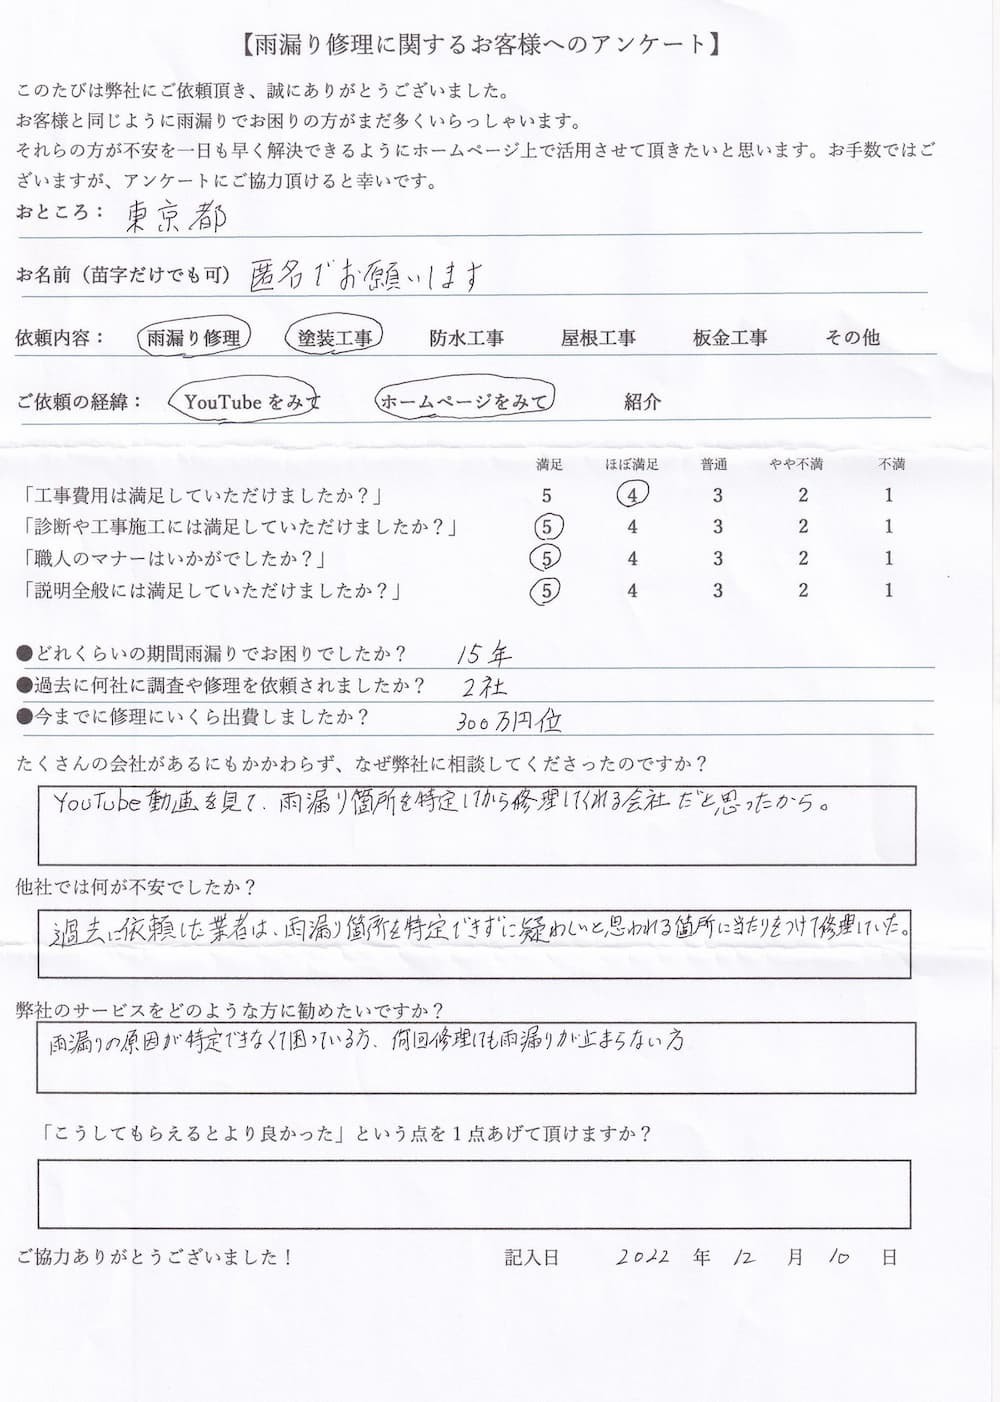 【雨漏り修理に関するお客様へのアンケート】
このたびは弊社にご依頼頂き、誠にありがとうございました。
お客様と同じように雨漏りでお困りの方がまだ多くいらっしゃいます。
それらの方が不安を一日も早く解決できるようにホームページ上で活用させて頂きたいと思います。お手数ではご
ざいますが、アンケートにご協力頂けると幸いです。
おところ： 東京都
お名前（苗字だけでも可） 匿名でお願いします
依頼内容： 雨漏り修理 塗装工事 防水工事 屋根工事 板金工事 その他
ご依頼の経緯： YouTubeをみて ホームページをみて 紹介
満足 ほぼ満足 普通 やや不満 不満
「工事費用は満足していただけましたか？」 5 4 3 2 1
「診断や工事施工には満足していただけましたか？」 5 4 3 2 1
「職人のマナーはいかがでしたか？」 5 4 3 2 1
「説明全般には満足していただけましたか？」 5 4 3 2 1
●どれくらいの期間雨漏りでお困りでしたか？ 15年
●過去に何社に調査や修理を依頼されましたか？ 2社
●今までに修理にいくら出費しましたか？ 300万円位
たくさんの会社があるにもかかわらず、なぜ弊社に相談してくださったのですか？
YouTube動画を見て、雨漏り箇所を特定してから修理してくれる会社だと思ったから。
他社では何が不安でしたか？
過去に依頼した業者は、雨漏り箇所を特定できずに疑わしいと思われる箇所に当たりをつけて修理していた。
弊社のサービスをどのような方に勧めたいですか？
雨漏りの原因が特定できなくて困っている方、何回修理しても雨漏りが止まらない方
「こうしてもらえるとより良かった」という点を１点あげて頂けますか？
ご協力ありがとうございました！ 記入日 2022 年 12 月 10 日